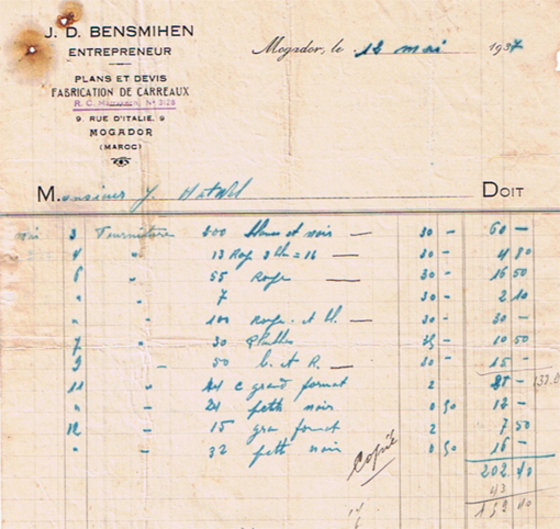 J. D. BENSMIHEN
ENTREPRENEUR
PLANS ET DEVIS
FABRICATION DE CARREAUX
R. C. Nº 3128
9. RUE D'ITALIE, 9
MOGADOR
(MAROC)
Mogador, le 12 mai 1937
Monsieur J. DOIT
mai 3 Fourniture 200 et noir — 30 - 60 -
4 " 13 3 = 16 — 30 - 4 80
6 " 55 Roge — 30 - 16 50
" " 7 30 - 2 10
" " 100 Roge et — 30 - 30 -
7 " 30 35 - 10 50
9 - 50 b. et R. — 30 - 15 -
11 " 24 c grand format 2
" - 24 petts noir 0 50 12 -
12 - 15 gran format 2 7 50
" - 32 petts noir 0 50 16 -
Copié
202.40
43
159 40